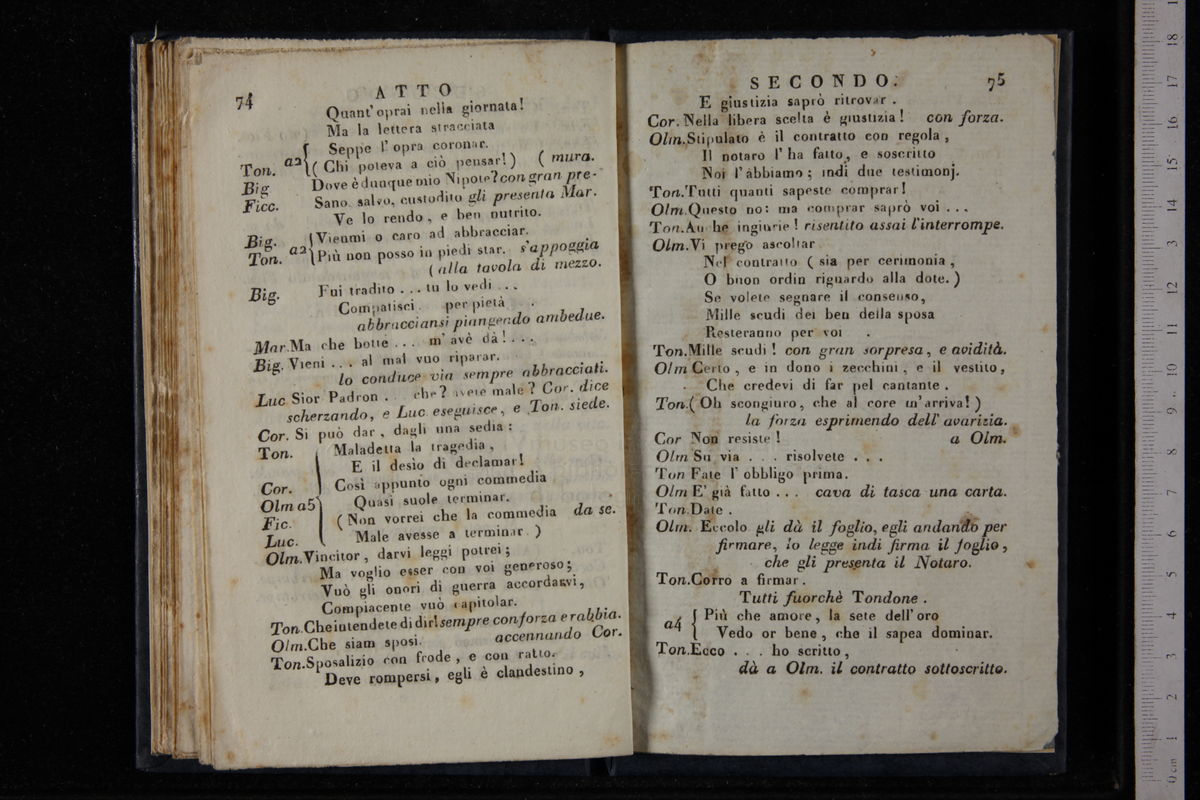 74
ATTO
Quant' oprai nella giornata!
Ma la lettera stracciata
Seppe l' opra coronar.
Ton. a2 ( Chi poteva a ciò pensar! ) ( mura.
Big Dove è dunque mio Nipote? con gran pre-
Ficc. Sano salvo, custodito gli presenta Mar.
Ve lo rendo, e ben nutrito.
Big. Vienmi o caro ad abbracciar.
Ton. a2 Più non posso in piedi star. s'appoggia
( alla tavola di mezzo.
Big. Fui tradito . . . tu lo vedi . . .
Compatisci. per pietà .
abbracciansi piangendo ambedue.
Mar. Ma che botte . . . m' avè dà ! . . .
Big. Vieni . . . al mal vuo riparar.
lo conduce via sempre abbracciati.
Luc Sior Padron . . che? avete male? Cor. dice
scherzando, e Luc eseguisce, e Ton. siede.
Cor. Si può dar, dagli una sedia:
Ton. Maladetta la tragedia,
E il desìo di declamar!
Cor. Così appunto ogni commedia
Olm a5 Quasi suole terminar.
Fic. ( Non vorrei che la commedia da se.
Luc. Male avesse a terminar. )
Olm. Vincitor, darvi leggi potrei;
Ma voglio esser con voi generoso;
Vuò gli onori di guerra accordarvi,
Compiacente vuò capitolar.
Ton. Che intendete di dir! sempre con forza e rabbia.
Olm. Che siam sposi. accennando Cor.
Ton. Sposalizio con frode, e con ratto.
Deve rompersi, egli è clandestino,
SECONDO.
75
E giustizia saprò ritrovar .
Cor. Nella libera scelta è giustizia! con forza.
Olm. Stipulato è il contratto con regola,
Il notaro l' ha fatto, e soscritto
Noi l' abbiamo; indi due testimonj.
Ton. Tutti quanti sapeste comprar!
Olm. Questo no: ma comprar saprò voi . . .
Ton. Anche ingiurie! risentito assai l'interrompe.
Olm. Vi prego ascoltar
Nel contratto ( sia per cerimonia,
O buon ordin riguardo alla dote. )
Se volete segnare il consenso,
Mille scudi dei ben della sposa
Resteranno per voi .
Ton. Mille scudi! con gran sorpresa, e avidità.
Olm Certo, e in dono i zecchini, e il vestito,
Che credevi di far pel cantante.
Ton. ( Oh scongiuro, che al core m'arriva! )
la forza esprimendo dell' avarizia.
Cor Non resiste! a Olm.
Olm Su via . . . risolvete . . .
Ton Fate l' obbligo prima.
Olm E' già fatto . . . cava di tasca una carta.
Ton. Date .
Olm. Eccolo gli dà il foglio, egli andando per
firmare, lo legge indi firma il foglio,
che gli presenta il Notaro.
Ton. Corro a firmar.
Tutti fuorchè Tondone .
a4 Più che amore, la sete dell' oro
Vedo or bene, che il sapea dominar.
Ton. Ecco . . . ho scritto,
dà a Olm. il contratto sottoscritto.